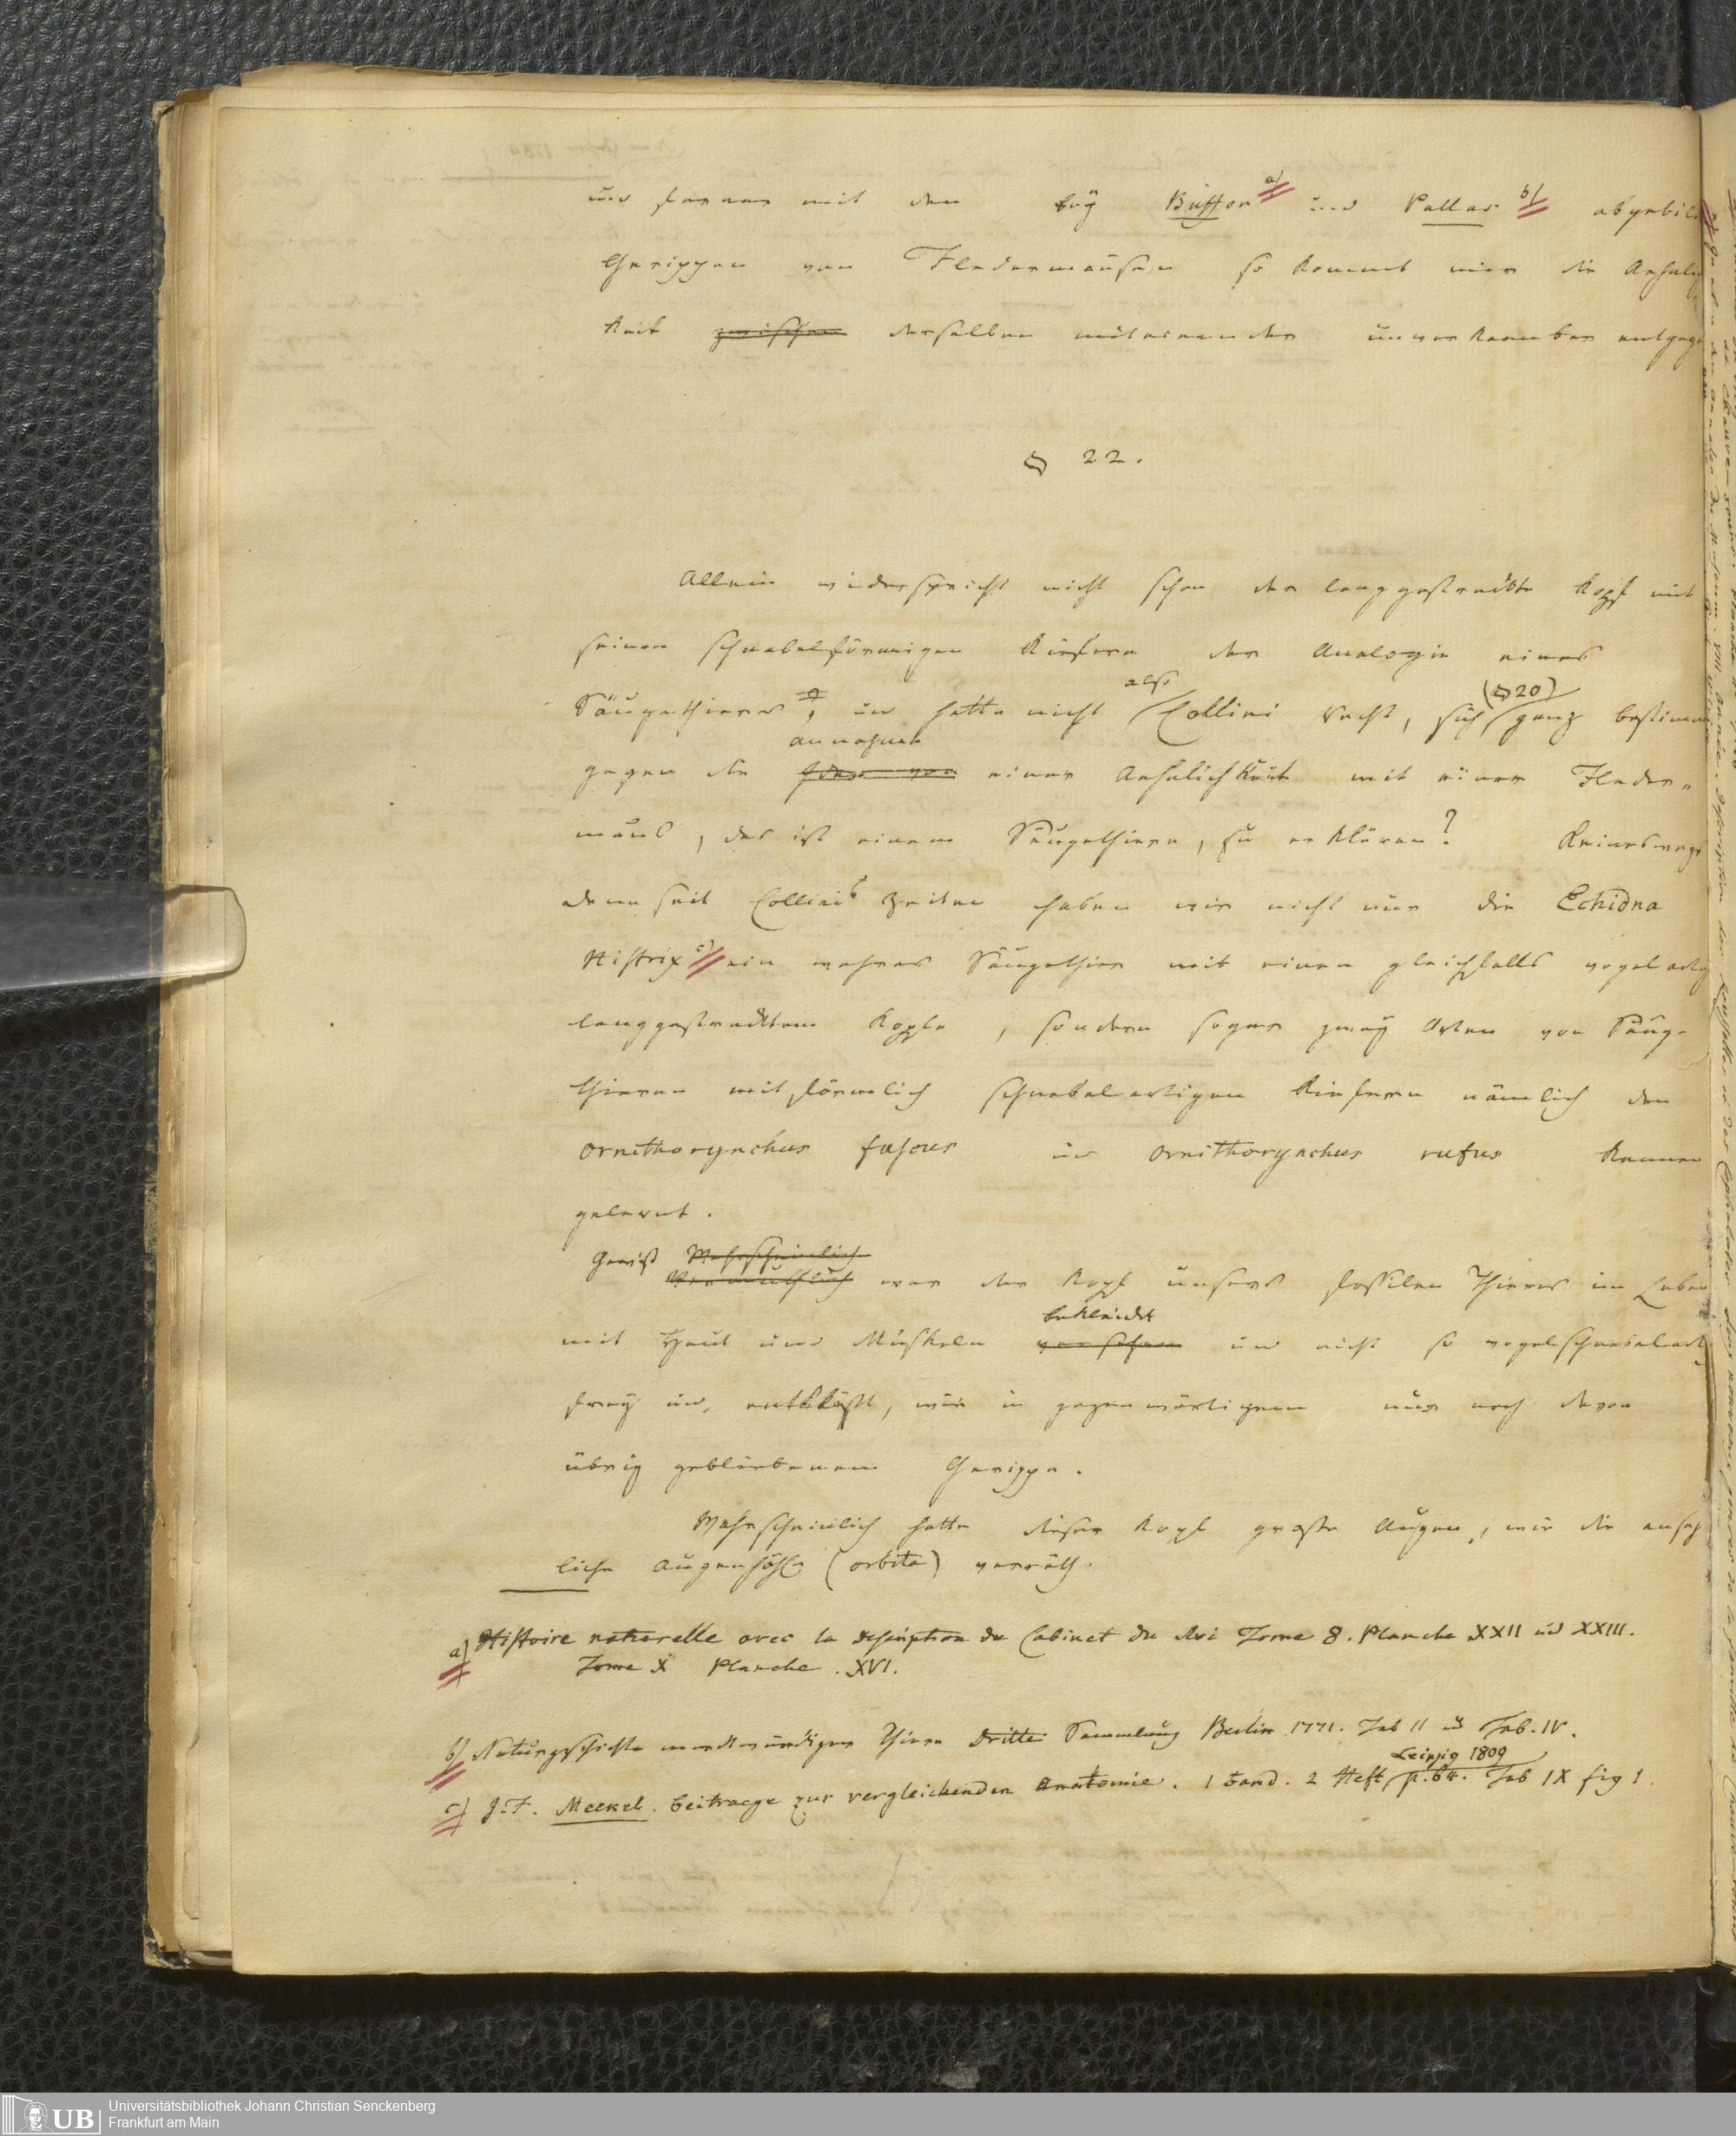 und ferner mit den beÿ Buffon a) und Pallas b) abgebil
Gerippen von Fledermäusen so kommt mir die Aehnlig
keit zwischen derselben miteinander unverkennbar entgeg
§ 22.
Allein widerspricht nicht schon der langgestreckte Kopf mit
seinen schnabelförmigen Kiefern der Analogie eines
also (§ 20)
Säugethieres, und hatte nicht Collini Recht, sich ganz bestimm
annahme
gegen die Idee von einer Aehnlichkeit mit einer Fleder„
maus, das ist einem Säugethiere, zu erklären? Keineswegs
denn seit Collinis Zeiten haben wir nicht nur die Echidna
Histrix c) ein wahres Säugethier mit einem gleichfalls vogelartig
langgestreckten Kopfe, sondern sogar zweÿ Arten von Säug-
thieren mit förmlich schnabelartigen Kiefern nämlich den
Ornithorynchus fuscus und Ornithorynchus rufus kennen
gelernt.
Gewiß Wahrscheinlich
Vermuthlich war der Kopf unseres fossilen Thieres im Leben
bekleidet
mit Haut und Muskeln versehen und nicht so vogelschnabelart
freÿ und entblößt, wie in gegenwärtigem nur noch davon
übrig gebliebenen Gerippe.
Wahrscheinlich hatte dieser Kopf große Augen, wie die anseh
liche Augenhöhle (orbita) verräth.
a) Histoire naturelle avec la description du Cabinet du Roi Tome 8. Planche XXII und XXIII.
Tome X Planche. XVI.
b) Naturgeschichte merkwürdiger Thiere Dritte Sammlung Berlin 1771. Tab II und Tab. IV.
Leipzig 1809
c) J. F. Meckel. Beitraege zur vergleichenden Anatomie. 1 Band. 2 Heft, p. 64. Tab IX fig 1.
UB Universitätsbibliothek Johann Christian Senckenberg
Frankfurt am Main